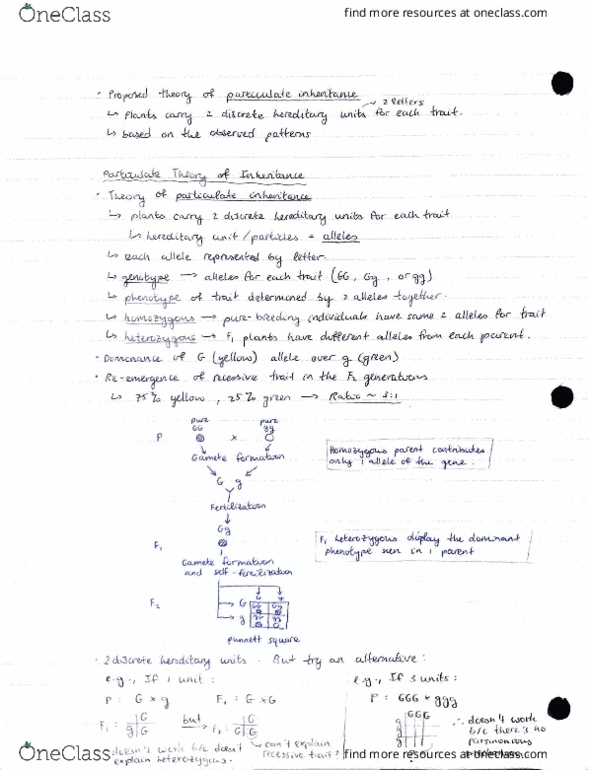 OneClass
find more resources at oneclass.com
· Proposed theory of particulate inheritance
→ 2 letters
↳ plants carry 2 discrete hereditary units for each trait.
↳ based on the observed patterns
Particulate Theory of Inheritance
· Theory of particulate inheritance
↳ plants carry 2 discrete hereditary units for each trait
↳ hereditary unit/particles = alleles
↳ each allele represented by letter.
↳ genotype → alleles for each trait (GG, Gg, or gg)
↳ phenotype of trait determined by 2 alleles together.
↳ homozygous → pure-breeding individuals have same 2 alleles for trait
↳ heterozygous → F₁ plants have different alleles from each parent.
· Dominance of G (yellow) allele over g (green)
· Re-emergence of recessive trait in the F₂ generations
↳ 75% yellow, 25% green → Ratio ~ 3:1
pure pure
GG gg
P x
Gamete formation
Homozygous parent contributes
only 1 allele of the gene.
G g
Fertilization
Gg
F₁
F₁ heterozygous display the dominant
phenotype seen in 1 parent
Gamete formation
and self-fertilization
F₂ G GG Gg
g gg
punnett square
· 2 discrete hereditary units. But try an alternative:
e.g., If 1 unit:
P: G × g F₁: G × G
F₁: G
g G but F₂: G
G G
doesn't work b/c doesn't
explain heterozygous.
can't explain
recessive trait?
e.g., If 3 units:
P: GGG × ggg
GGG
g
g
g
∴ doesn't work
b/c there's no
parsimonious
OneClass
find more resources at oneclass.com